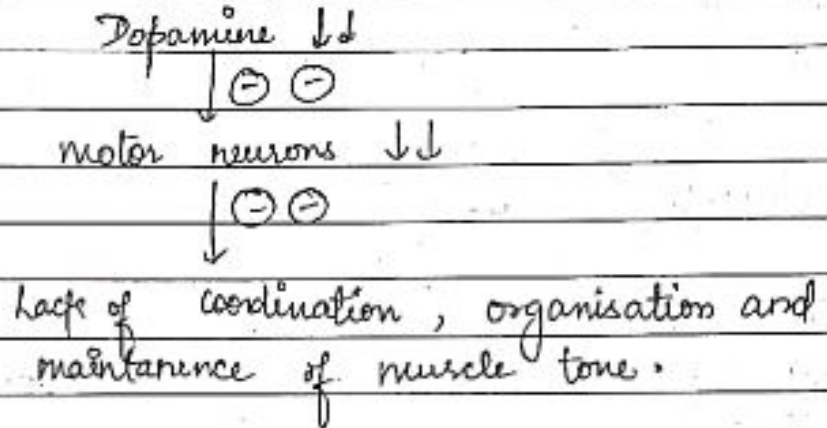 Dopamine ↓↓
↓ ⊖ ⊖
motor neurons ↓↓
↓ ⊖ ⊖
Lack of coordination, organisation and
maintanence of muscle tone.